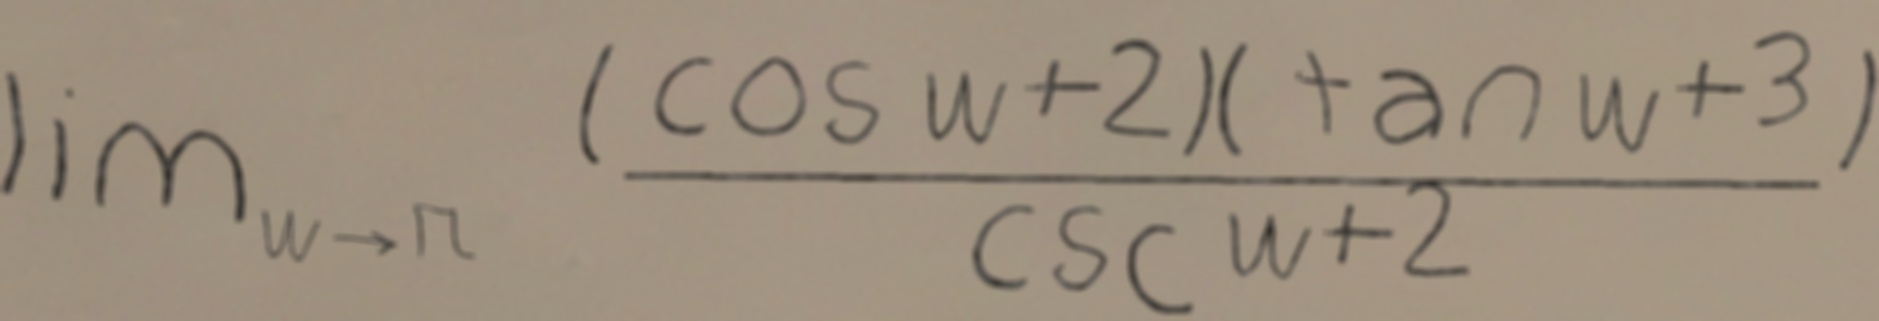 lim w→π (cos w+2)(tan w+3)
csc w+2